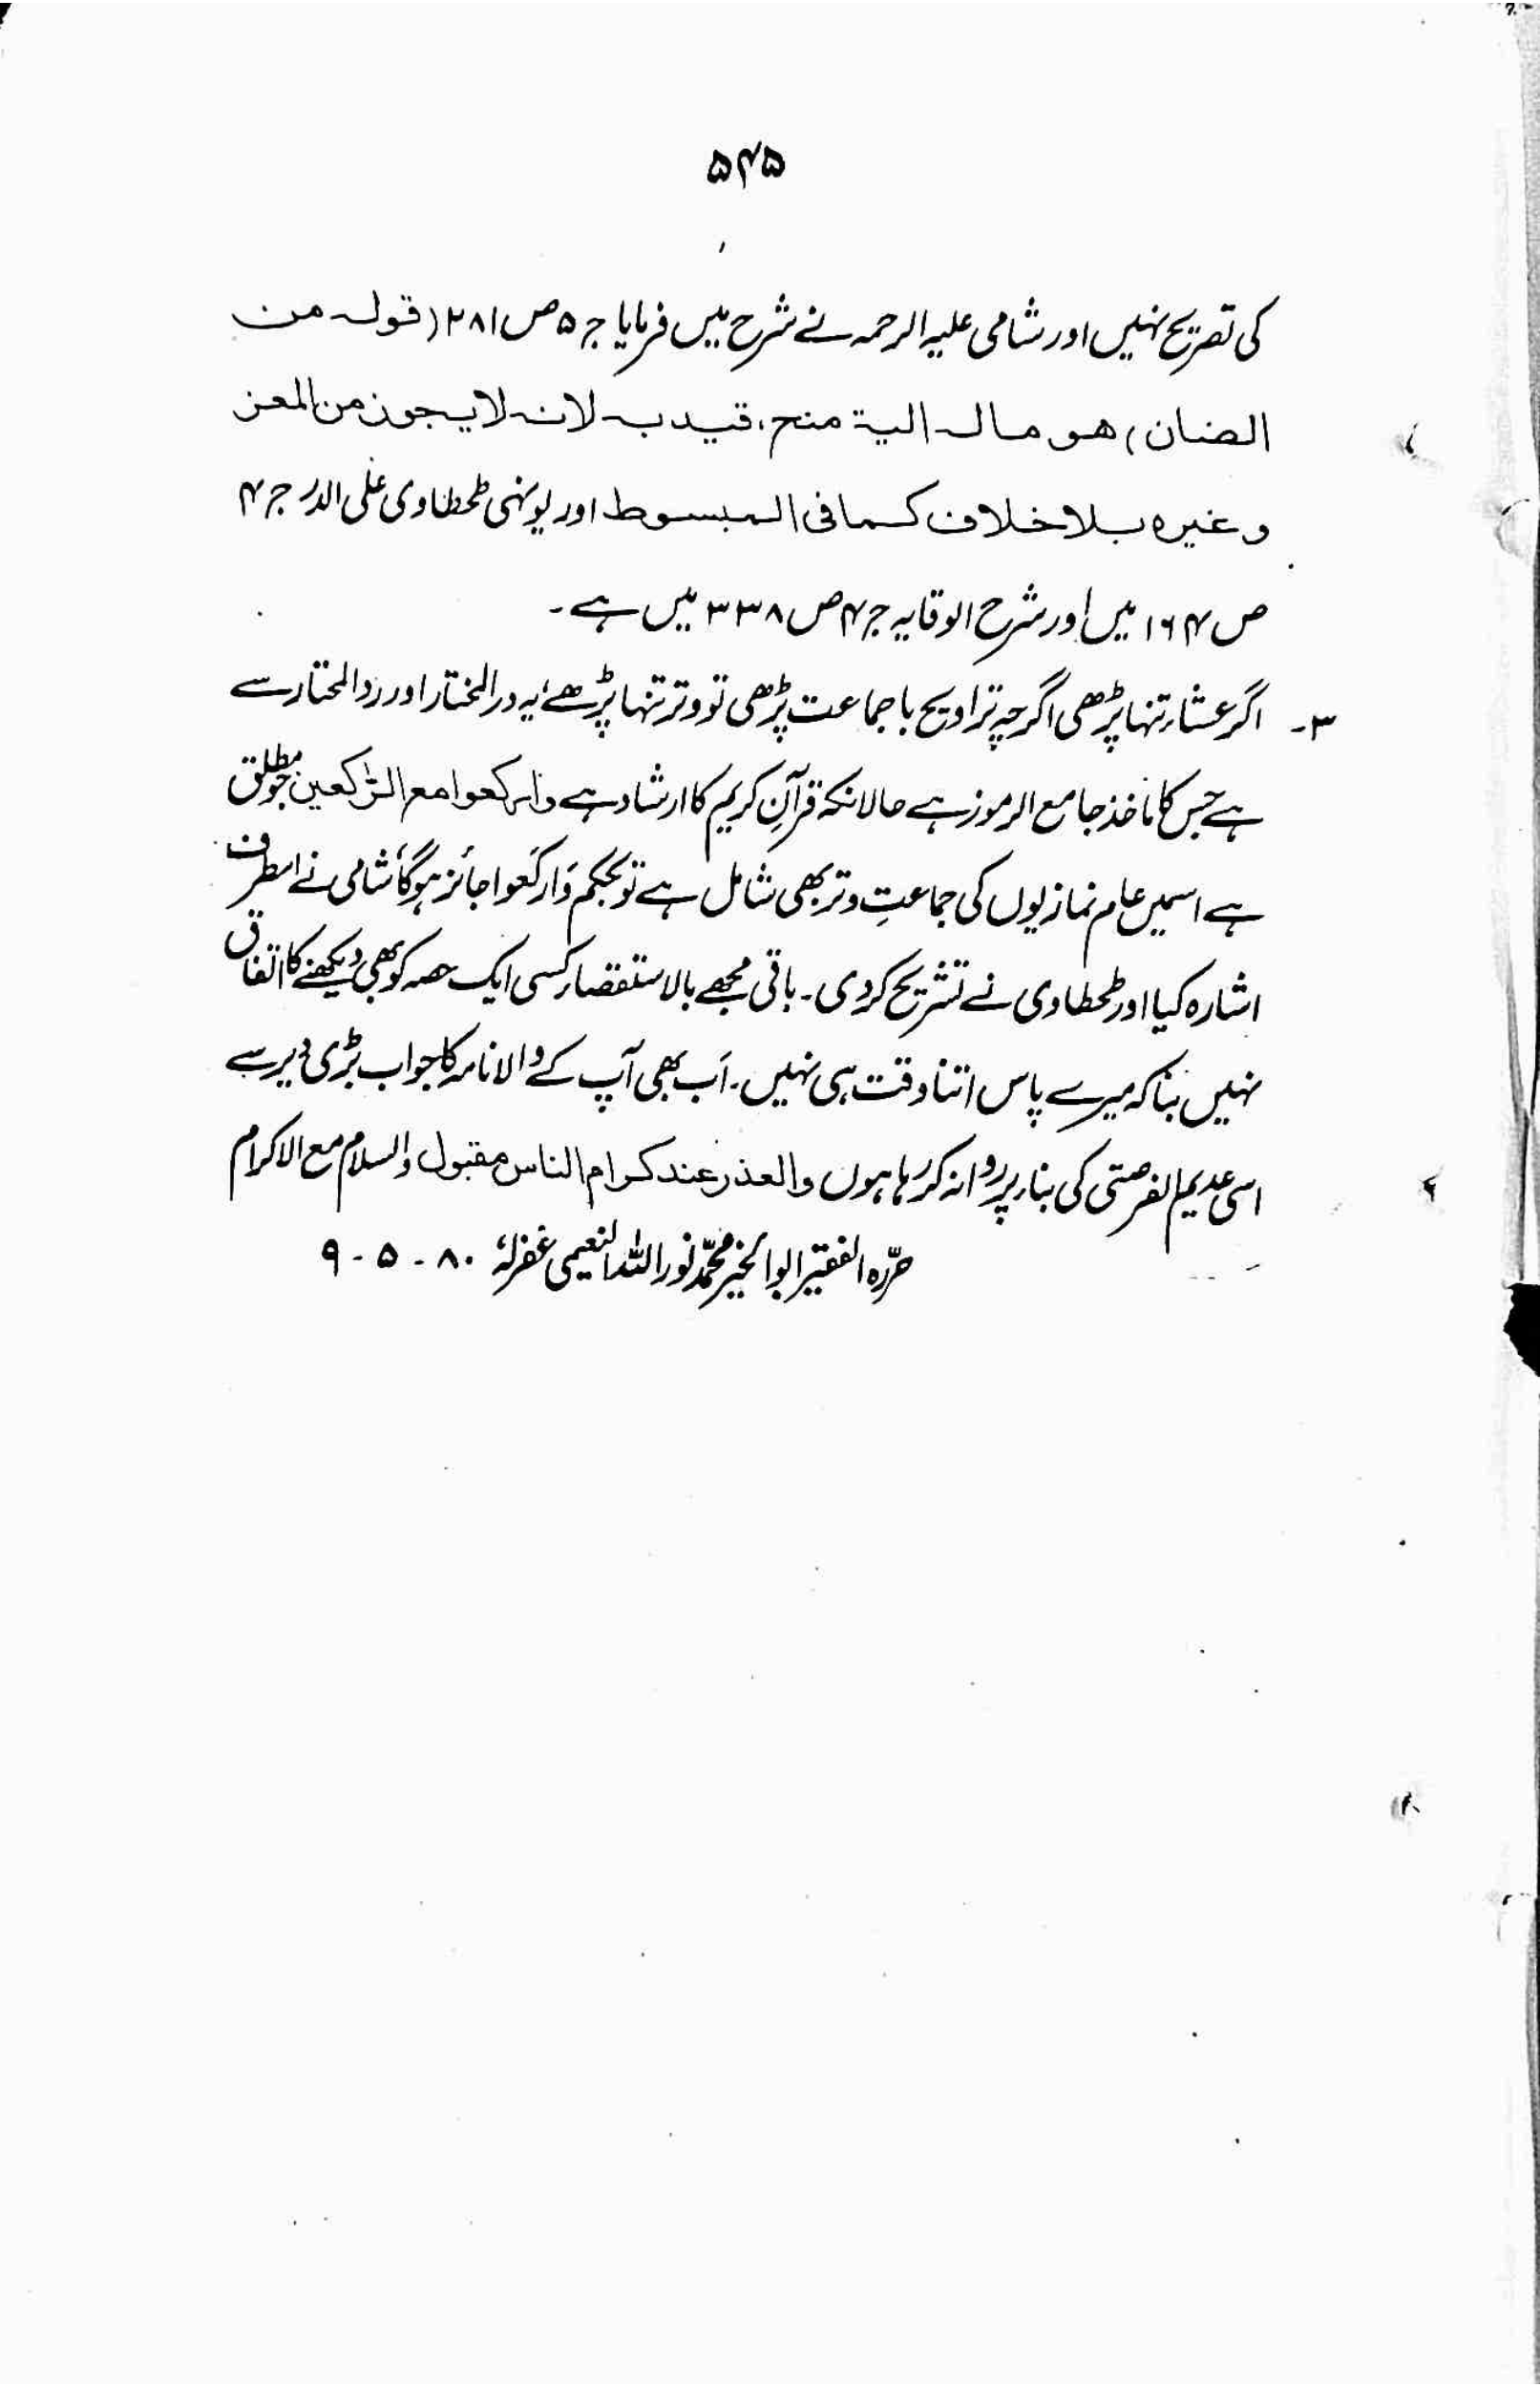 ۵۴۵
کی تصریح نہیں اور شامی علیہ الرحمہ نے شرح میں فرمایا ج ۵ ص ۲۸۱ (قولہ من
الضان) ھو مالہ الیۃ منح، قید بہ لانہ لا یجوز من المعز
وغیرہ بلا خلاف کما فی المبسوط اور یونہی طحطاوی علی الدر ج ۴
ص ۱۶۴ میں اور شرح الوقایہ ج ۴ ص ۳۳۸ میں ہے۔
۳۔ اگر عشاء تنہا پڑھی اگرچہ تراویح با جماعت پڑھی تو وتر تنہا پڑھے، یہ در المختار اور رد المحتار سے
ہے جس کا ماخذ جامع الرموز ہے حالانکہ قرآنِ کریم کا ارشاد ہے وارکعوا مع الرّاکعین جو مطلق
ہے اسمیں عام نمازیوں کی جماعتِ وتر بھی شامل ہے تو بحکم وَارکَعوا جائز ہوگا، شامی نے اسطرف
اشارہ کیا اور طحطاوی نے تشریح کردی۔ باقی مجھے بالاستقصار کسی ایک حصہ کو بھی دیکھنے کا اتفاق
نہیں بنا کہ میرے پاس اتنا وقت ہی نہیں۔ اَب بھی آپ کے والا نامہ کا جواب بڑی دیر سے
اسی عدیم الفرصتی کی بناء پر روانہ کر رہا ہوں والعذر عند کرام الناس مقبول والسلام مع الاکرام
حرّرہ الفقیر ابوالخیر محمّد نور اللہ النعیمی غفرلہٗ ۸۰ - ۵ - ۹